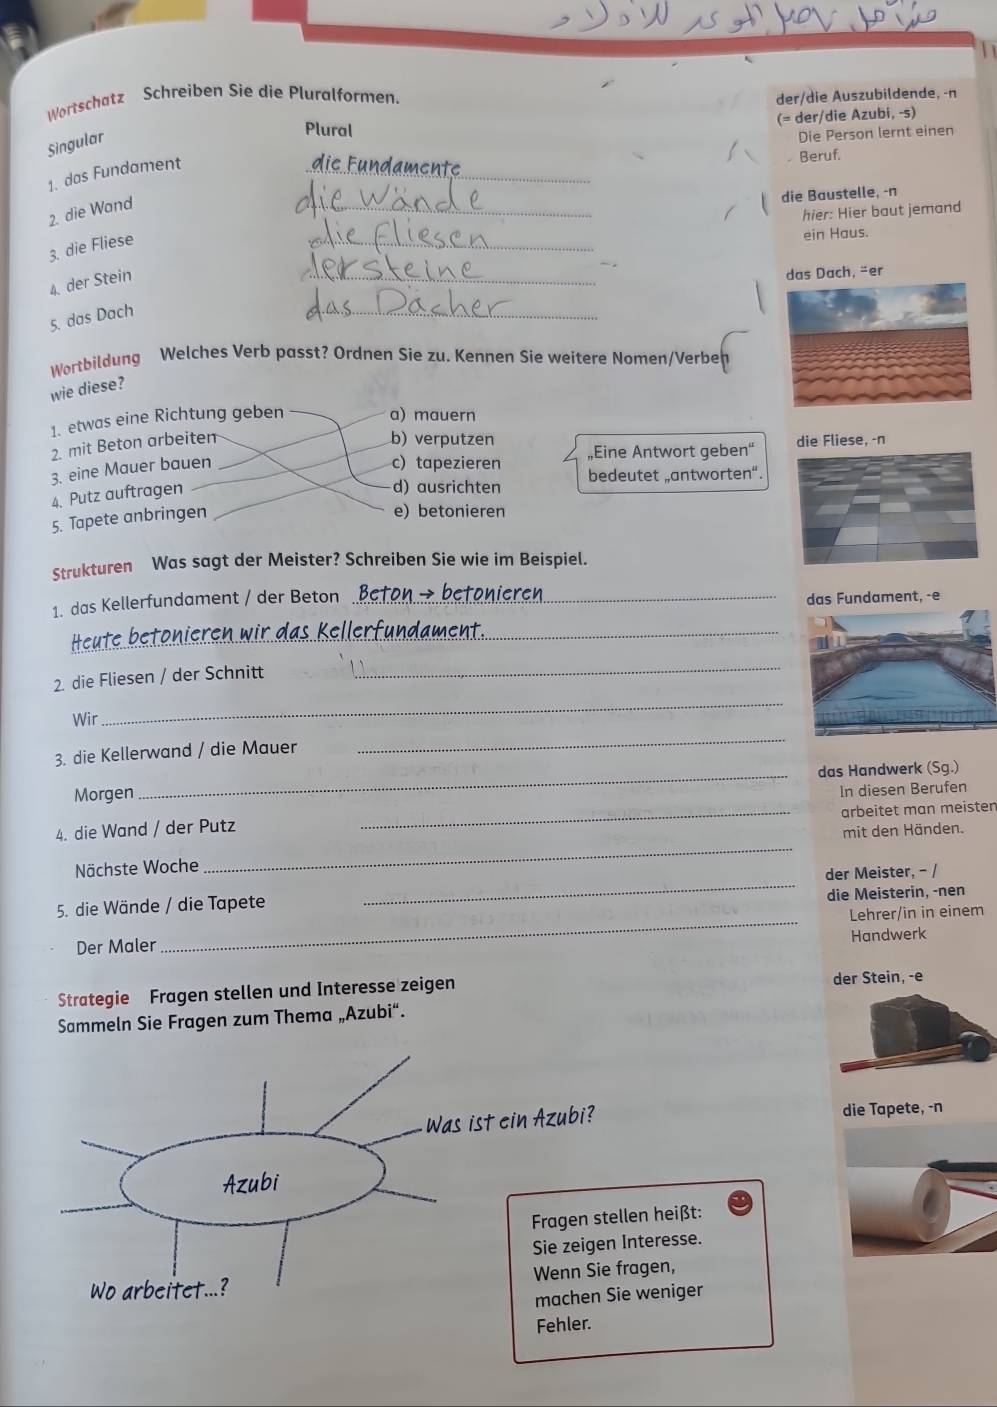 Wortschatz Schreiben Sie die Pluralformen.
Singular Plural
1. das Fundament die Fundamente
2. die Wand die Wände
3. die Fliese die Fliesen
4. der Stein der steine
5. das Dach das Dächer
Wortbildung Welches Verb passt? Ordnen Sie zu. Kennen Sie weitere Nomen/Verben
wie diese?
1. etwas eine Richtung geben a) mauern
2. mit Beton arbeiten b) verputzen
3. eine Mauer bauen c) tapezieren
4. Putz auftragen d) ausrichten
5. Tapete anbringen e) betonieren
„Eine Antwort geben“
bedeutet „antworten“.
Strukturen Was sagt der Meister? Schreiben Sie wie im Beispiel.
1. das Kellerfundament / der Beton Beton → betonieren
Heute betonieren wir das Kellerfundament.
2. die Fliesen / der Schnitt
Wir
3. die Kellerwand / die Mauer
Morgen
4. die Wand / der Putz
Nächste Woche
5. die Wände / die Tapete
Der Maler
Strategie Fragen stellen und Interesse zeigen
Sammeln Sie Fragen zum Thema „Azubi“.
Was ist ein Azubi?
Azubi
Wo arbeitet...?
Fragen stellen heißt:
Sie zeigen Interesse.
Wenn Sie fragen,
machen Sie weniger
Fehler.
der/die Auszubildende, -n
(= der/die Azubi, -s)
Die Person lernt einen
Beruf.
die Baustelle, -n
hier: Hier baut jemand
ein Haus.
das Dach, ⸚er
die Fliese, -n
das Fundament, -e
das Handwerk (Sg.)
In diesen Berufen
arbeitet man meisten
mit den Händen.
der Meister, - /
die Meisterin, -nen
Lehrer/in in einem
Handwerk
der Stein, -e
die Tapete, -n